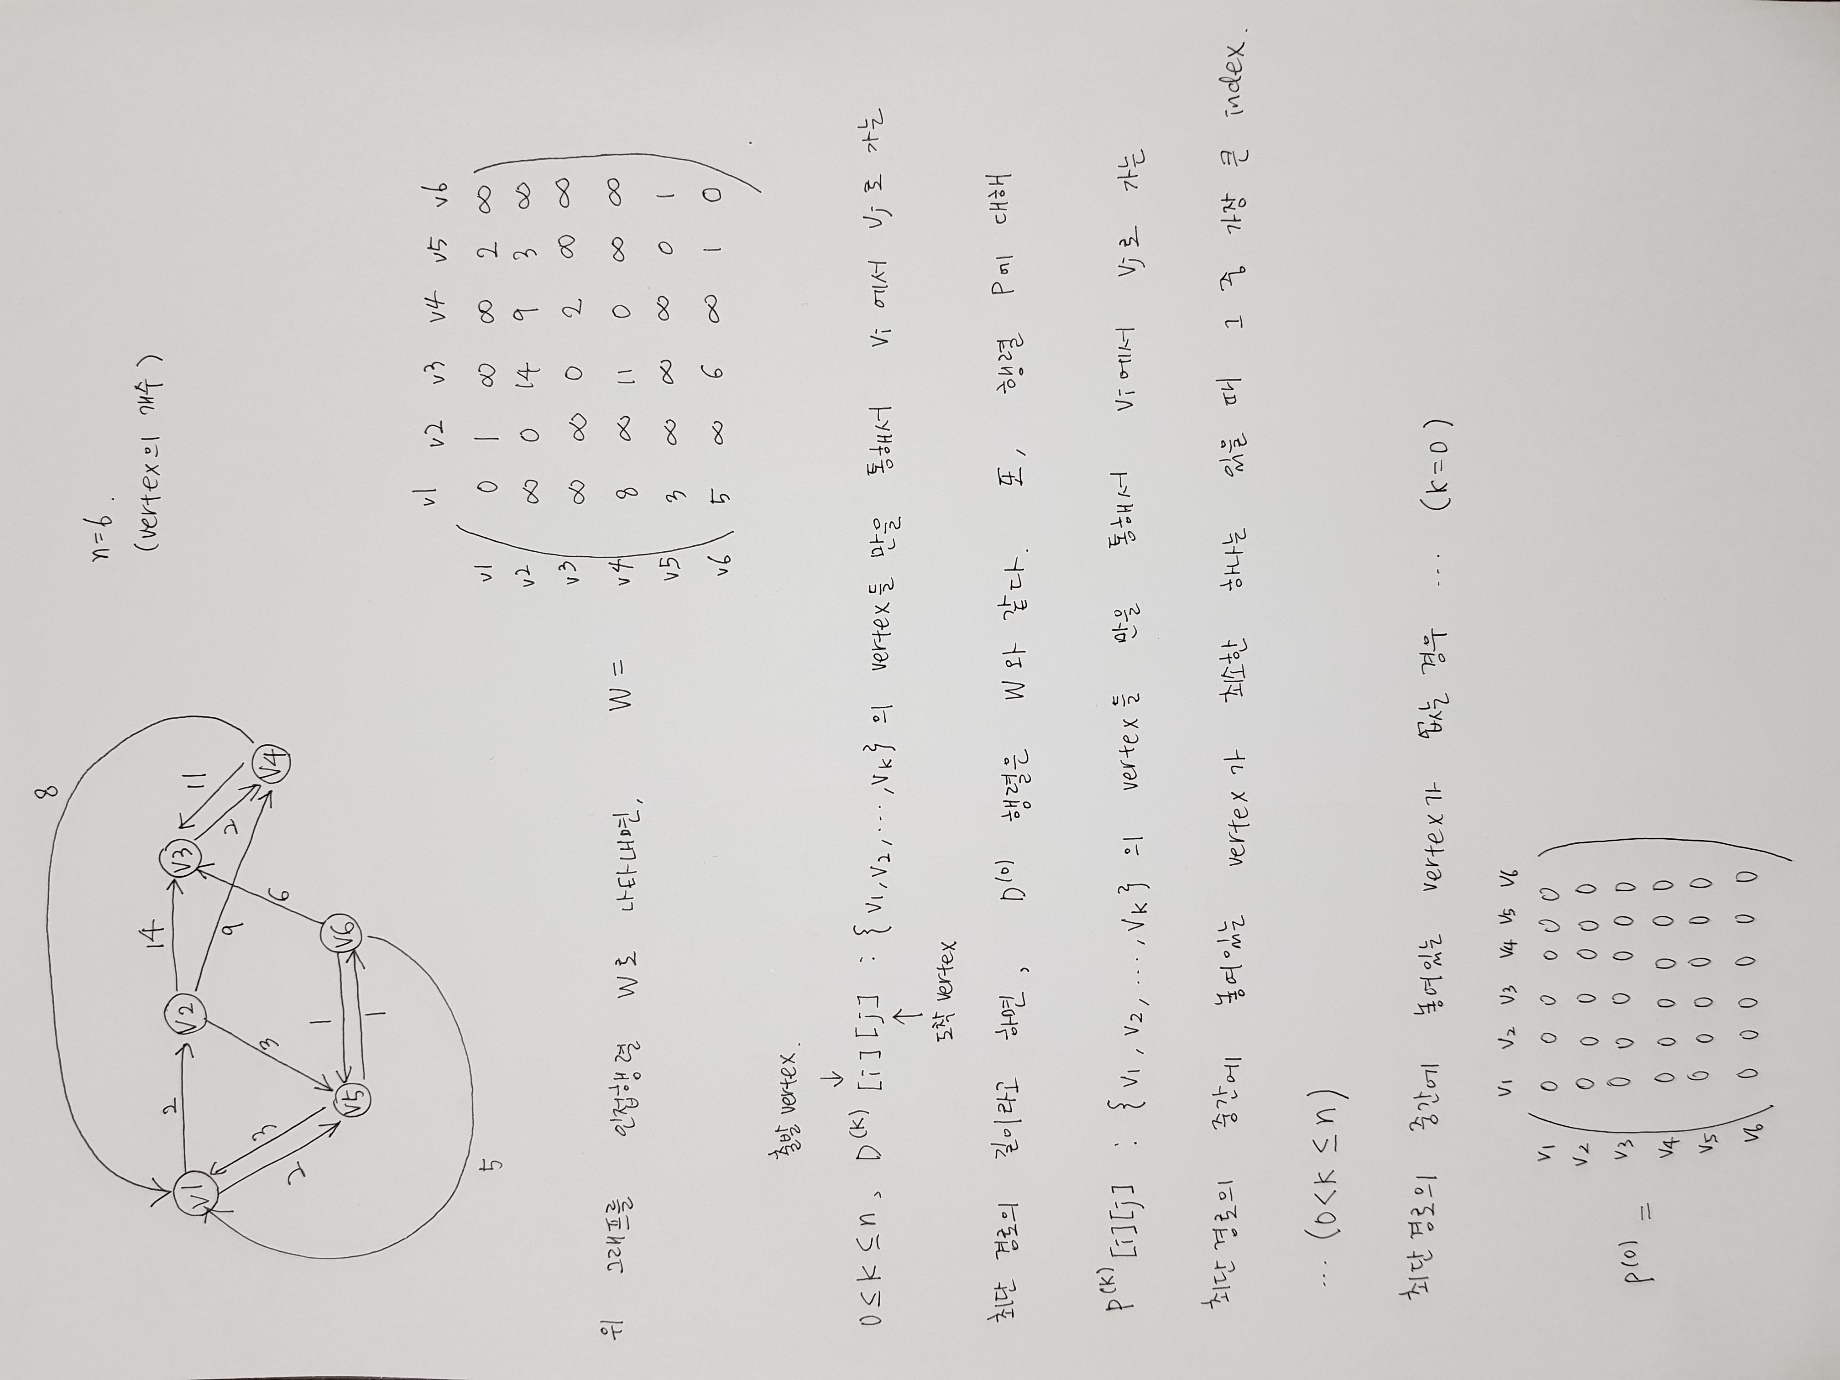 n=6.
(vertex의 개수)
8
14
11
2
9
2
3
6
3
2
1
1
5
v1
v2
v3
v4
v5
v6
위 그래프를 인접행렬 W로 나타내면, W =
v1 v2 v3 v4 v5 v6
v1 0 1 ∞ ∞ 2 ∞
v2 ∞ 0 14 9 3 ∞
v3 ∞ ∞ 0 2 ∞ ∞
v4 8 ∞ 11 0 ∞ ∞
v5 3 ∞ ∞ ∞ 0 1
v6 5 ∞ 6 ∞ 1 0
출발 vertex.
↓
0 ≤ K ≤ n, D(K) [i][j] : {v1, v2, ..., vK} 의 vertex들 만을 통해서 vi 에서 vj 로 가는
↑
도착 vertex
최단 경로의 길이라고 하면, D(0) 행렬은 W와 같다. 또, 행렬 P에 대해
P(K) [i][j] : {v1, v2, ..., vK} 의 vertex들 만을 통해서 vi에서 vj로 가는
최단경로의 중간에 놓여있는 vertex가 최소한 하나는 있을 때 그 중 가장 큰 index.
... (0<K≤n)
최단경로의 중간에 놓여있는 vertex가 없는 경우 ... (K=0)
v1 v2 v3 v4 v5 v6
v1 0 0 0 0 0 0
v2 0 0 0 0 0 0
P(0) = v3 0 0 0 0 0 0
v4 0 0 0 0 0 0
v5 0 0 0 0 0 0
v6 0 0 0 0 0 0